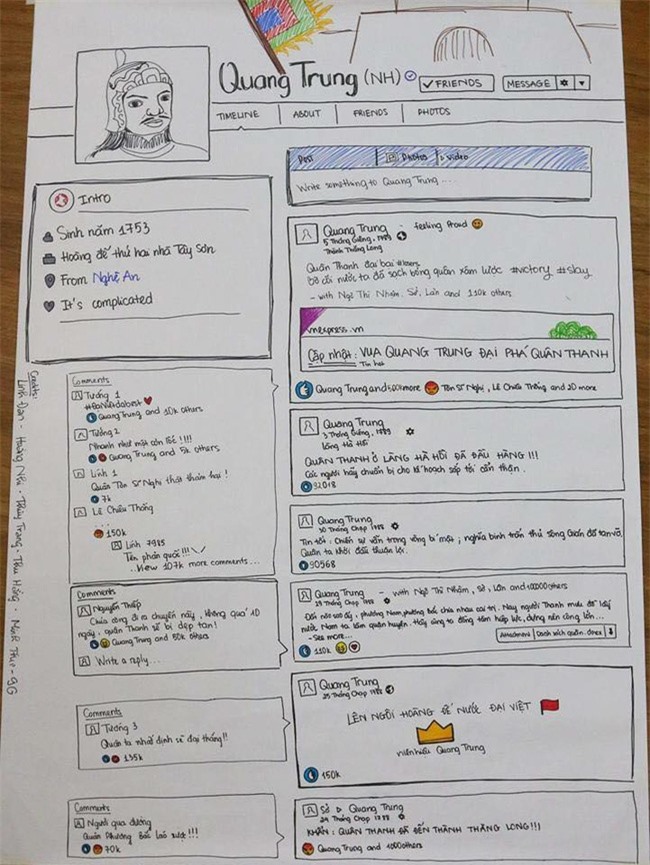 Quang Trung (NH)
✓ FRIENDS
MESSAGE
TIMELINE
ABOUT
FRIENDS
PHOTOS
Intro
Sinh năm 1753
Hoàng đế thứ hai nhà Tây Sơn
From Nghệ An
It's complicated
Post
Photos
Video
Write something to Quang Trung ...
Quang Trung - feeling Proud
5 Tháng Giêng, 1789
Thành Thăng Long
Quân Thanh đại bại
Bờ cõi nước ta đã sạch bóng quân xâm lược #victory #slay
- with Ngô Thì Nhậm, Sở, Lân and 110k others
vnexpress.vn
Cập nhật: VUA QUANG TRUNG ĐẠI PHÁ QUÂN THANH
Tin hot
Quang Trung and
Tôn Sĩ Nghị, Lê Chiêu Thống and 20 more
Comments
Tướng 1
Quang Trung and 10k others
Tướng 2
Nhanh như một cơn lốc!!!!
Quang Trung and 5k others
Lính 1
Quân Tôn Sĩ Nghị thất thảm hại!
7k
Lê Chiêu Thống
...
150k
Lính 7985
Tên phản quốc!!!
..View 107k more comments...
Quang Trung
3 Tháng Giêng, 1789
Làng Hà Hồi
QUÂN THANH Ở LÀNG HÀ HỒI ĐÃ ĐẦU HÀNG!!!
Các ngươi hãy chuẩn bị cho kế hoạch sắp tới cẩn thận.
92018
Quang Trung
30 Tháng Chạp 1788
Tin tốt: Chiến sự vẫn trong vòng bí mật; nghĩa binh trấn thủ sông Gián đã tan vỡ,
Quân ta khởi đầu thuận lợi.
90568
Comments
Nguyễn Thiếp
Chúa công đi ra chuyến này, không quá 10
ngày, quân Thanh sẽ bị dẹp tan!
Quang Trung and 50k others
Write a reply...
Quang Trung - with Ngô Thì Nhậm, Sở, Lân and 100000 others
29 Tháng Chạp 1788
Đất nào sao ấy, phương Nam, phương Bắc chia nhau cai trị. Nay người Thanh mưu đồ lấy
nước Nam ta làm quận huyện. Hãy cùng ta đồng tâm hiệp lực, dựng nên công lớn...
- See more...
Attachment
110k
Quang Trung
25 Tháng Chạp 1788
LÊN NGÔI HOÀNG ĐẾ NƯỚC ĐẠI VIỆT
niên hiệu Quang Trung
150k
Comments
Tướng 3
Quân ta nhất định sẽ đại thắng!!
135k
Sở ▷ Quang Trung
24 Tháng Chạp 1788
KHẨN: QUÂN THANH ĐÃ ĐẾN THÀNH THĂNG LONG!!!
Quang Trung and 1000 others
Comments
Người qua đường
Quân Phương Bắc láo xược!!!
70k
Credits:
Linh Đan - Hoàng Nhi - Thùy Trang - Thu Hồng -